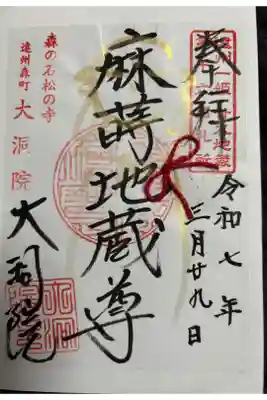 奉拝
令和七年
三月廿九日
麻蒔地蔵尊
森の石松の寺
遠州森町 大洞院
大洞院